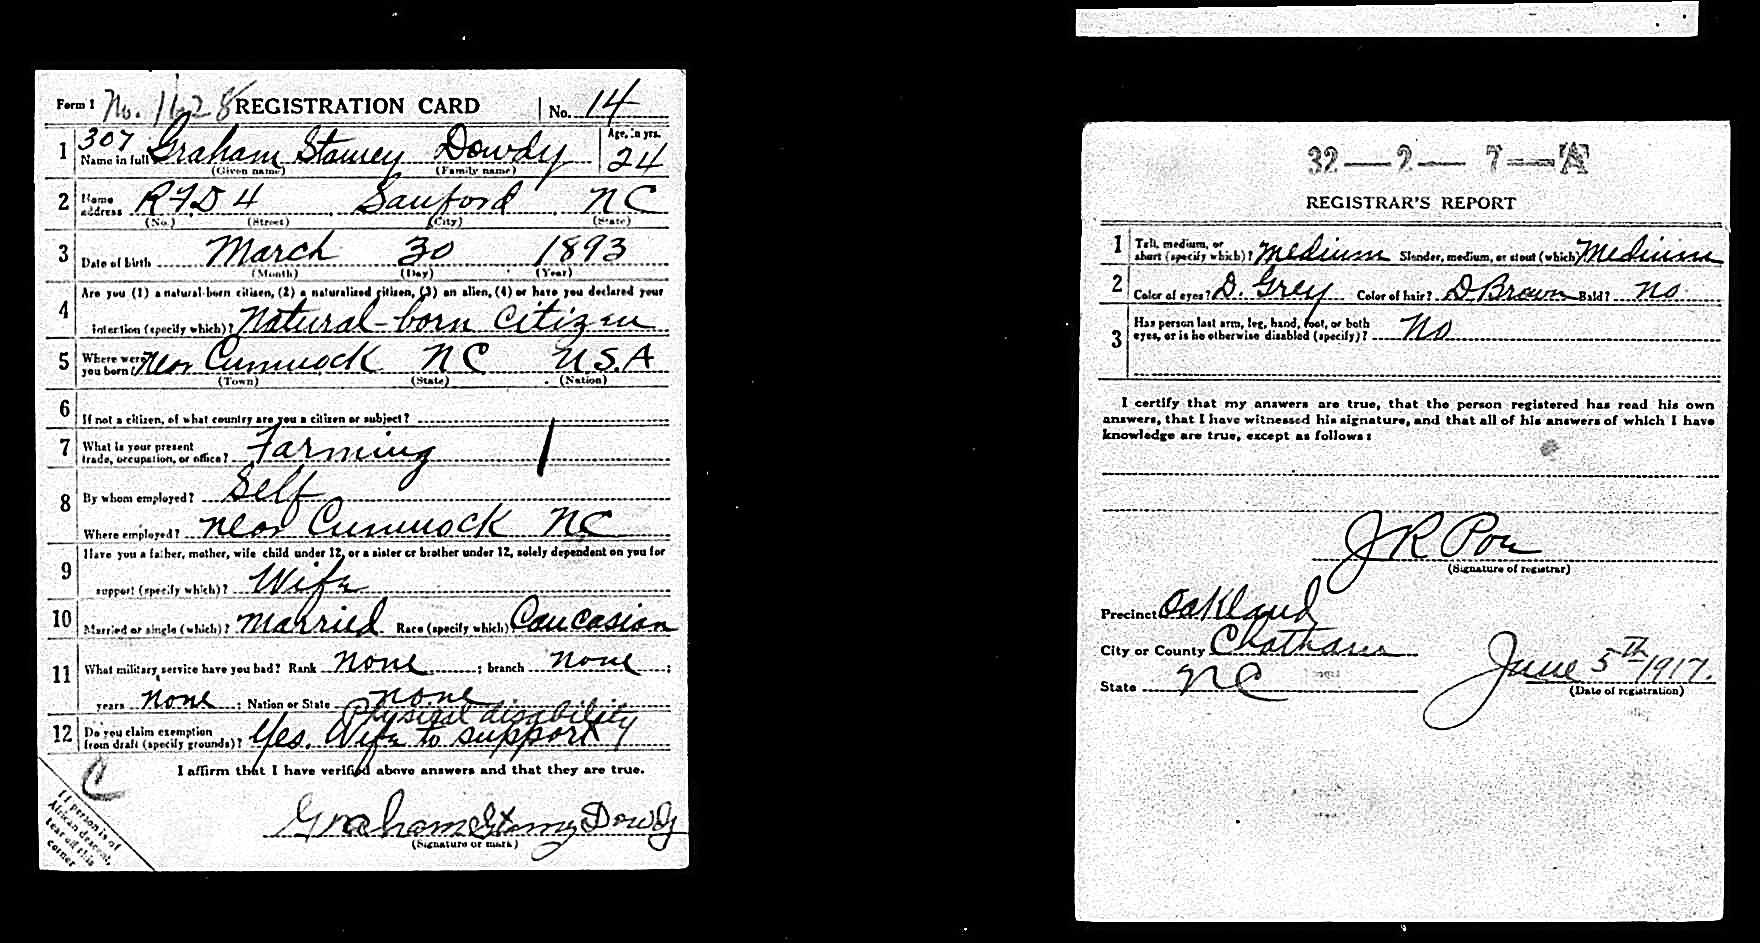 Form 1 No. 1628 REGISTRATION CARD No. 14
1 307 Name in full Graham Stamey Dowdy Age, in yrs. 24
(Given name) (Family name)
2 Home address RFD 4 Sanford NC
(No.) (Street) (City) (State)
3 Date of birth March 30 1893
(Month) (Day) (Year)
4 Are you (1) a natural-born citizen, (2) a naturalized citizen, (3) an alien, (4) or have you declared your
intention (specify which)? Natural-born citizen
5 Where were you born? Near Cumnock NC U.S.A
(Town) (State) (Nation)
6 If not a citizen, of what country are you a citizen or subject?
7 What is your present trade, occupation, or office? Farming 1
8 By whom employed? Self
Where employed? near Cumnock NC
9 Have you a father, mother, wife child under 12, or a sister or brother under 12, solely dependent on you for
support (specify which)? Wife
10 Married or single (which)? Married Race (specify which) Caucasian
11 What military service have you had? Rank none ; branch none ;
years none ; Nation or State none
Physical disability
12 Do you claim exemption from draft (specify grounds)? Yes. Wife to support
I affirm that I have verified above answers and that they are true.
C
Graham Stamey Dowdy
(Signature or mark)
If person is of
African descent,
tear off this
corner
32—2—7—A
REGISTRAR'S REPORT
1 Tall, medium, or short (specify which)? Medium Slender, medium, or stout (which) Medium
2 Color of eyes? D. Grey Color of hair? D Brown Bald? no
3 Has person lost arm, leg, hand, foot, or both
eyes, or is he otherwise disabled (specify)? No
I certify that my answers are true, that the person registered has read his own
answers, that I have witnessed his signature, and that all of his answers of which I have
knowledge are true, except as follows:
J R Poe
(Signature of registrar)
Precinct Oakland
City or County Chatham
State NC
June 5th 1917.
(Date of registration)